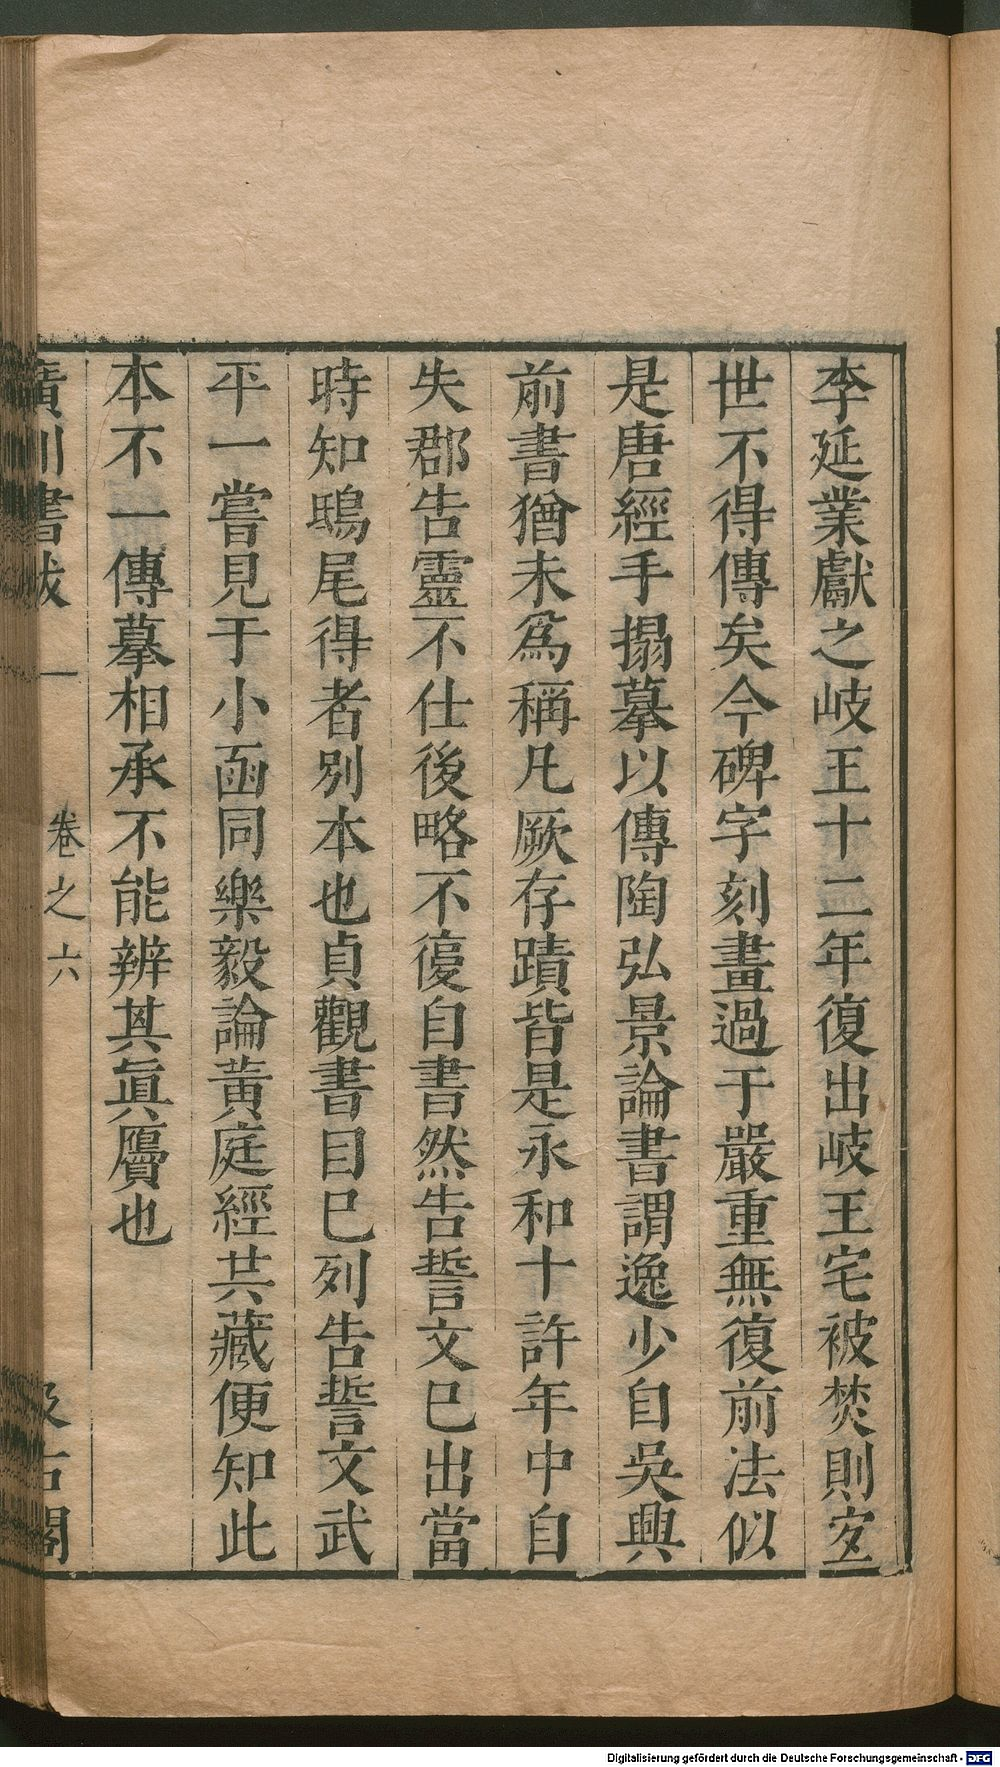 李延業獻之岐王十二年復出岐王宅被焚則㝎
世不得傳矣今碑字刻畫過于嚴重無復前法似
是唐經手搨摹以傳陶弘景論書謂逸少自吳興
前書猶未爲稱凡厥存蹟皆是永和十許年中自
失郡告靈不仕後略不復自書然告誓文巳出當
時知鴟尾得者別本也貞觀書目巳列告誓文武
平一嘗見于小函同樂毅論黃庭經共藏便知此
本不一傳摹相承不能辨其眞贋也
廣川書跋 卷之六 汲古閣
Digitalisierung gefördert durch die Deutsche Forschungsgemeinschaft - DFG